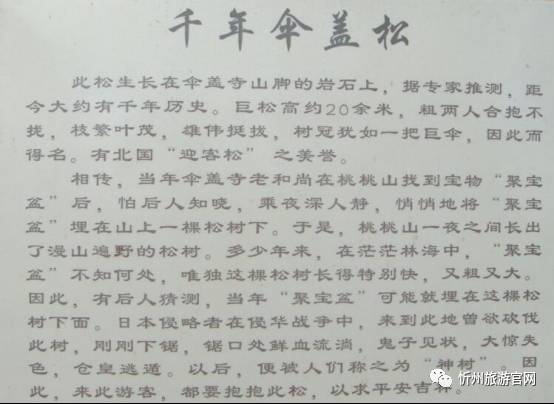 千年伞盖松
此松生长在伞盖寺山脚的岩石上，据专家推测，距
今大约有千年历史。巨松高约20余米，粗两人合抱不
拢，枝繁叶茂，雄伟挺拔，树冠犹如一把巨伞，因此而
得名。有北国“迎客松”之美誉。
相传，当年伞盖寺老和尚在桃桃山找到宝物“聚宝
盆”后，怕后人知晓，乘夜深人静，悄悄地将“聚宝
盆”埋在山上一棵松树下。于是，桃桃山一夜之间长出
了漫山遍野的松树。多少年来，在茫茫林海中，“聚宝
盆”不知何处，唯独这棵松树长得特别快，又粗又大。
因此，有后人猜测，当年“聚宝盆”可能就埋在这棵松
树下面。日本侵略者在侵华战争中，来到此地曾欲砍伐
此树，刚刚下锯，锯口处鲜血流淌，鬼子见状，大惊失
色，仓皇逃遁。以后，便被人们称之为“神村”，因
此，来此游客，都要抱抱此松，以求平安吉祥。
忻州旅游官网